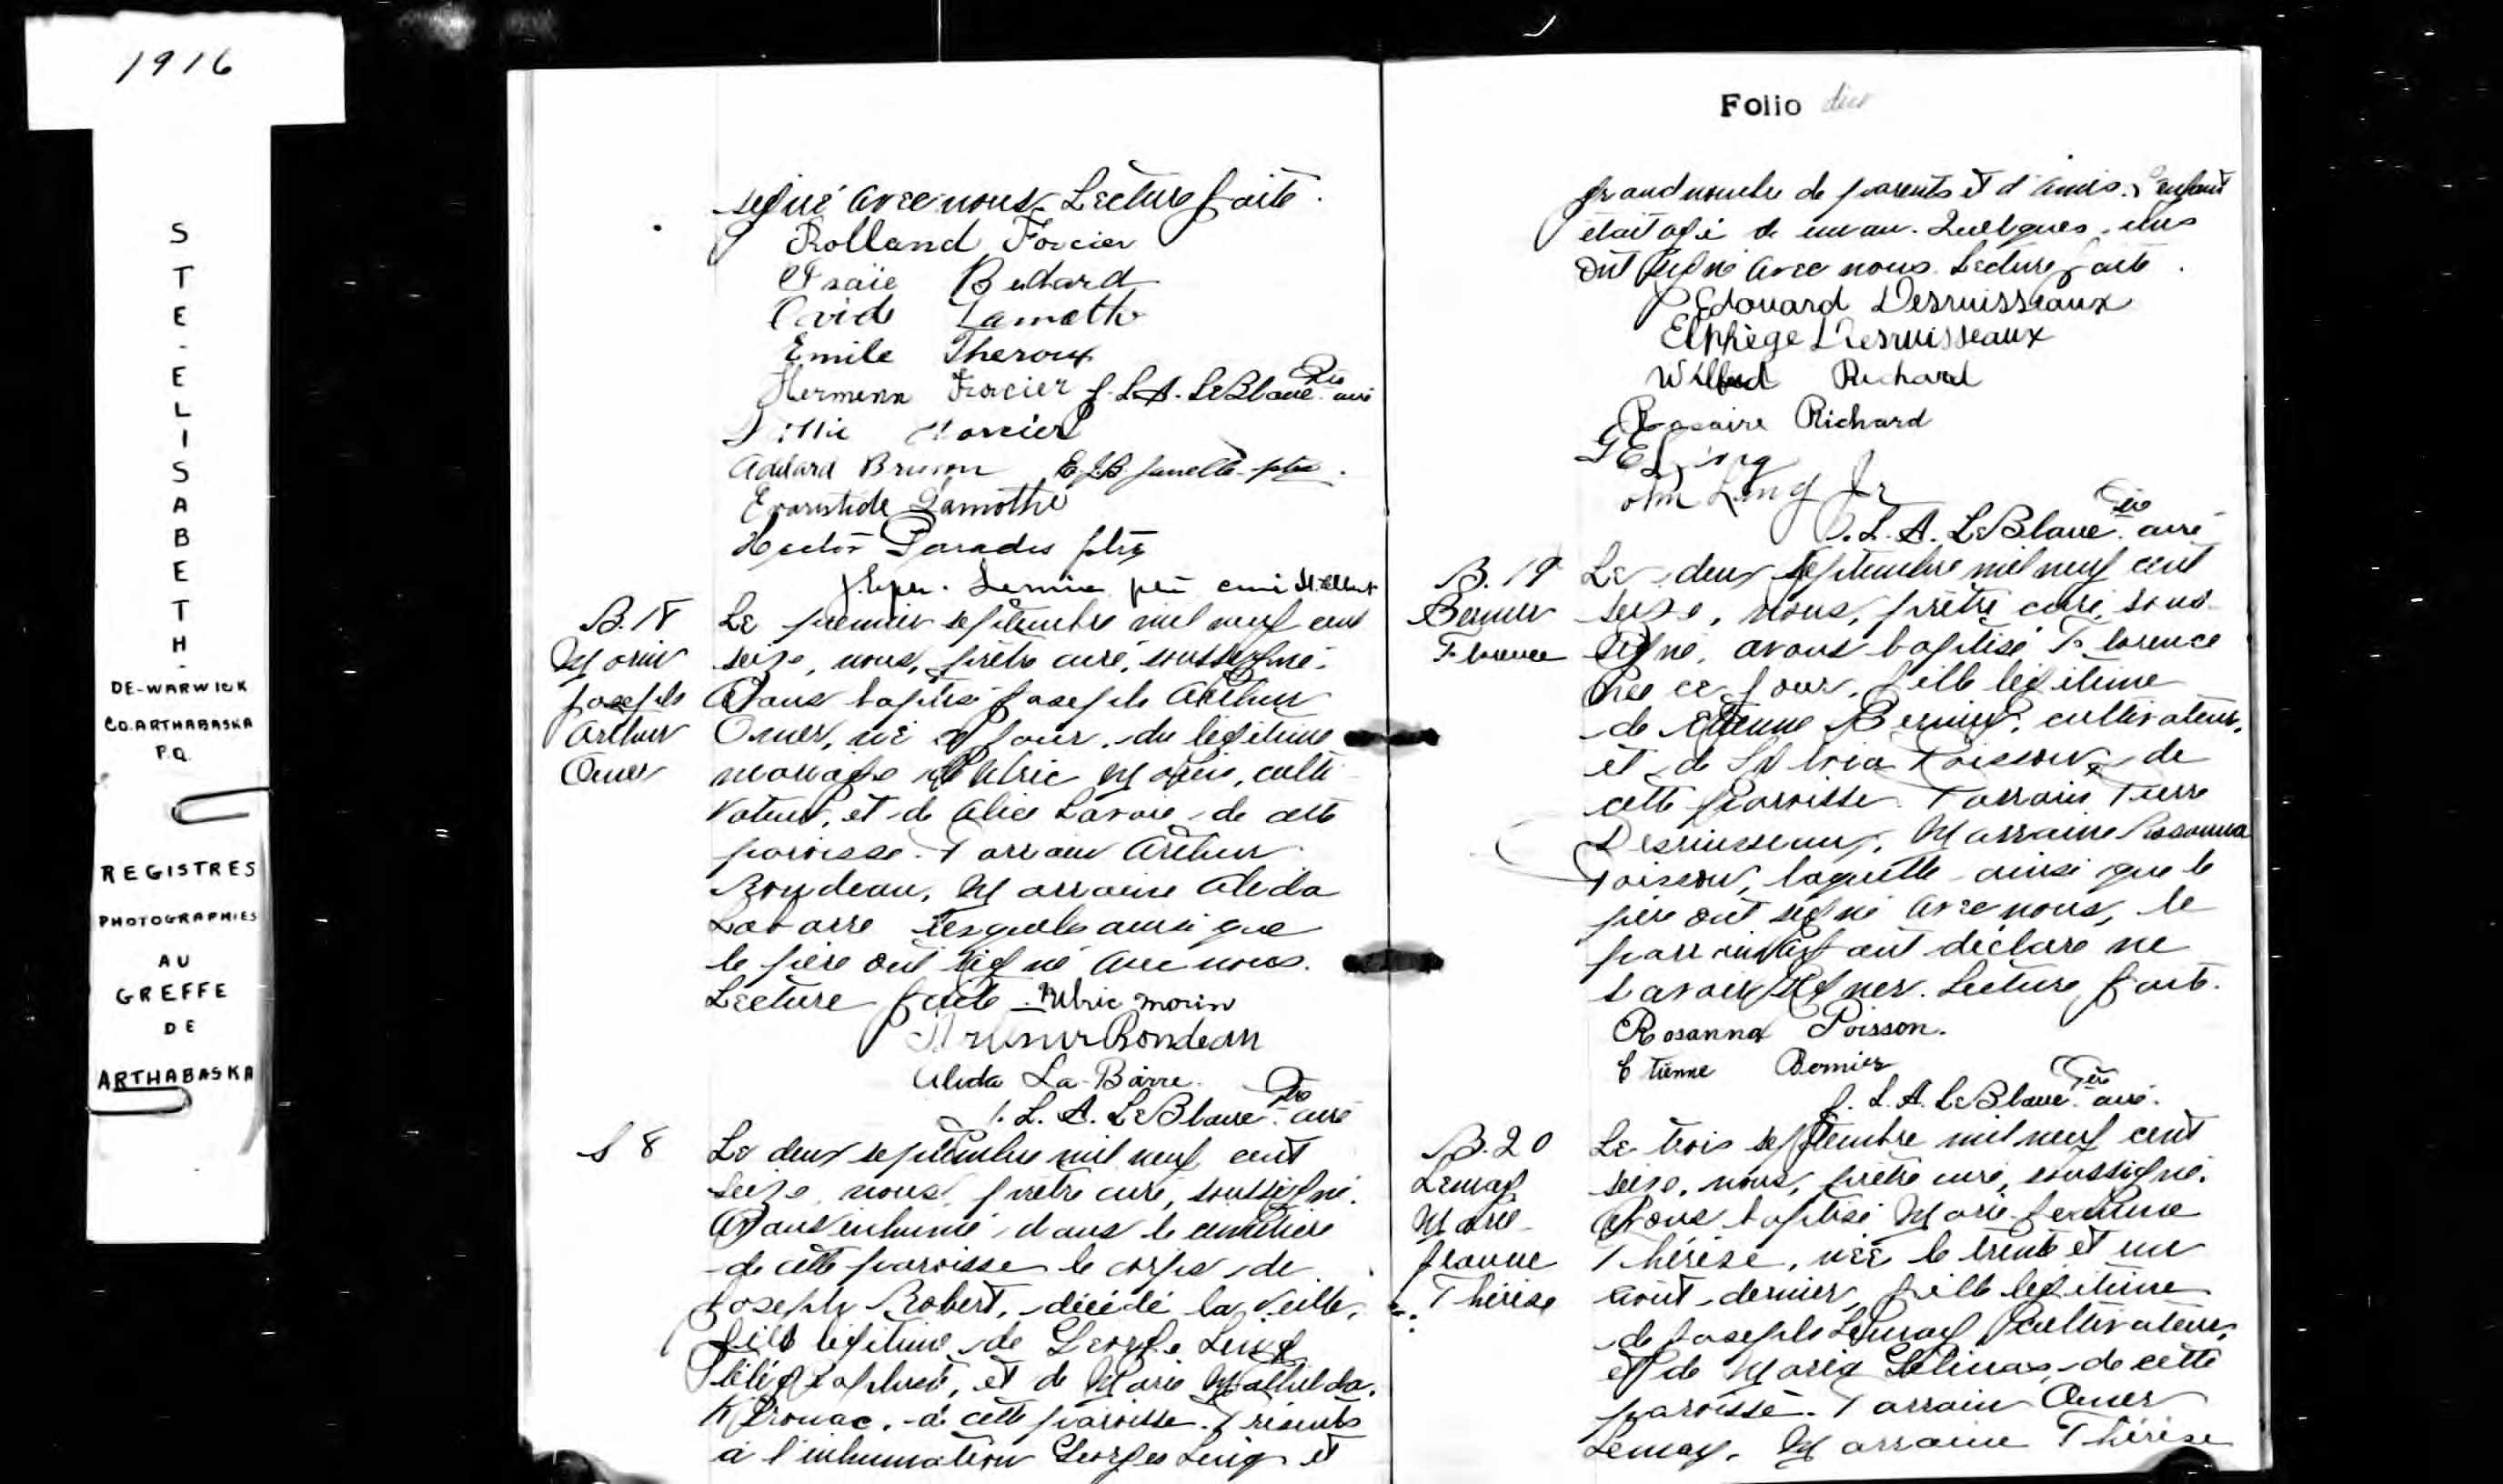 1916
STE-ELISABETH-
DE-WARWICK
CO. ARTHABASKA
P.Q.
REGISTRES
PHOTOGRAPHIES
AU
GREFFE
DE
ARTHABASKA
signé avec nous. Lecture faite.
Rolland Forcier
Isaïe Bedard
Ovide Lamothe
Emile Theroux
Hermenn Forcier J. L. A. LeBlanc Ptre curé
Forcier
Adélard E. J. B. Janelle ptre.
Lamothe
Hector Paradis ptre
ptre curé St. Albert
B. 18
Morin
Joseph
Arthur
Omer
Le premier septembre mil neuf cent
seize, nous, prêtre curé, soussigné,
avons baptisé Joseph Arthur
Omer, né ce jour, du légitime
mariage de Ulric Morin, culti-
vateur, et de Alice Lavoie, de cette
paroisse. Parrain Arthur
Rondeau, Marraine Alida
Labarre lesquels ainsi que
le père ont signé avec nous.
Lecture faite. Ulric Morin
Arthur Rondeau
Alida La Barre.
J. L. A. LeBlanc Ptre curé
S 8
Le deux septembre mil neuf cent
seize, nous, prêtre curé, soussigné,
avons inhumé dans le cimetière
de cette paroisse le corps de
Joseph Robert, décédé la veille,
fils légitime de George Ling
télégraphiste, et de Marie Mathilda
Kirouac, de cette paroisse. Présents
à l'inhumation Georges Ling et
Folio dix
grand nombre de parents et d'amis. L'enfant
était agé de un an. Quelques uns
ont signé avec nous. Lecture faite.
Edouard Desruisseaux
Elphège Desruisseaux
Wilfrid Richard
Rosaire Richard
G E Ling
John Ling Jr
J. L. A. LeBlanc Ptre curé
B. 19
Bernier
Florence
Le deux septembre mil neuf cent
seize, nous, prêtre curé, sous-
signé, avons baptisé Florence
née ce jour, fille légitime
de Etienne Bernier, cultivateur,
et de Poisson, de
cette paroisse. Parrain Pierre
Desruisseaux, Marraine Rosanna
Poisson, laquelle ainsi que le
père ont signé avec nous, le
parrain ayant déclaré ne
savoir signer. Lecture faite.
Rosanna Poisson.
Etienne Bernier
J. L. A. LeBlanc Ptre curé.
B. 20
Lemay
Marie
Jeanne
Thérèse
Le trois septembre mil neuf cent
seize, nous, prêtre curé, soussigné,
avons baptisé Marie Jeanne
Thérèse, née le trente et un
août dernier, fille légitime
de Joseph Lemay cultivateur,
et de Maria Gélinas, de cette
paroisse. Parrain Omer
Lemay, Marraine Thérèse